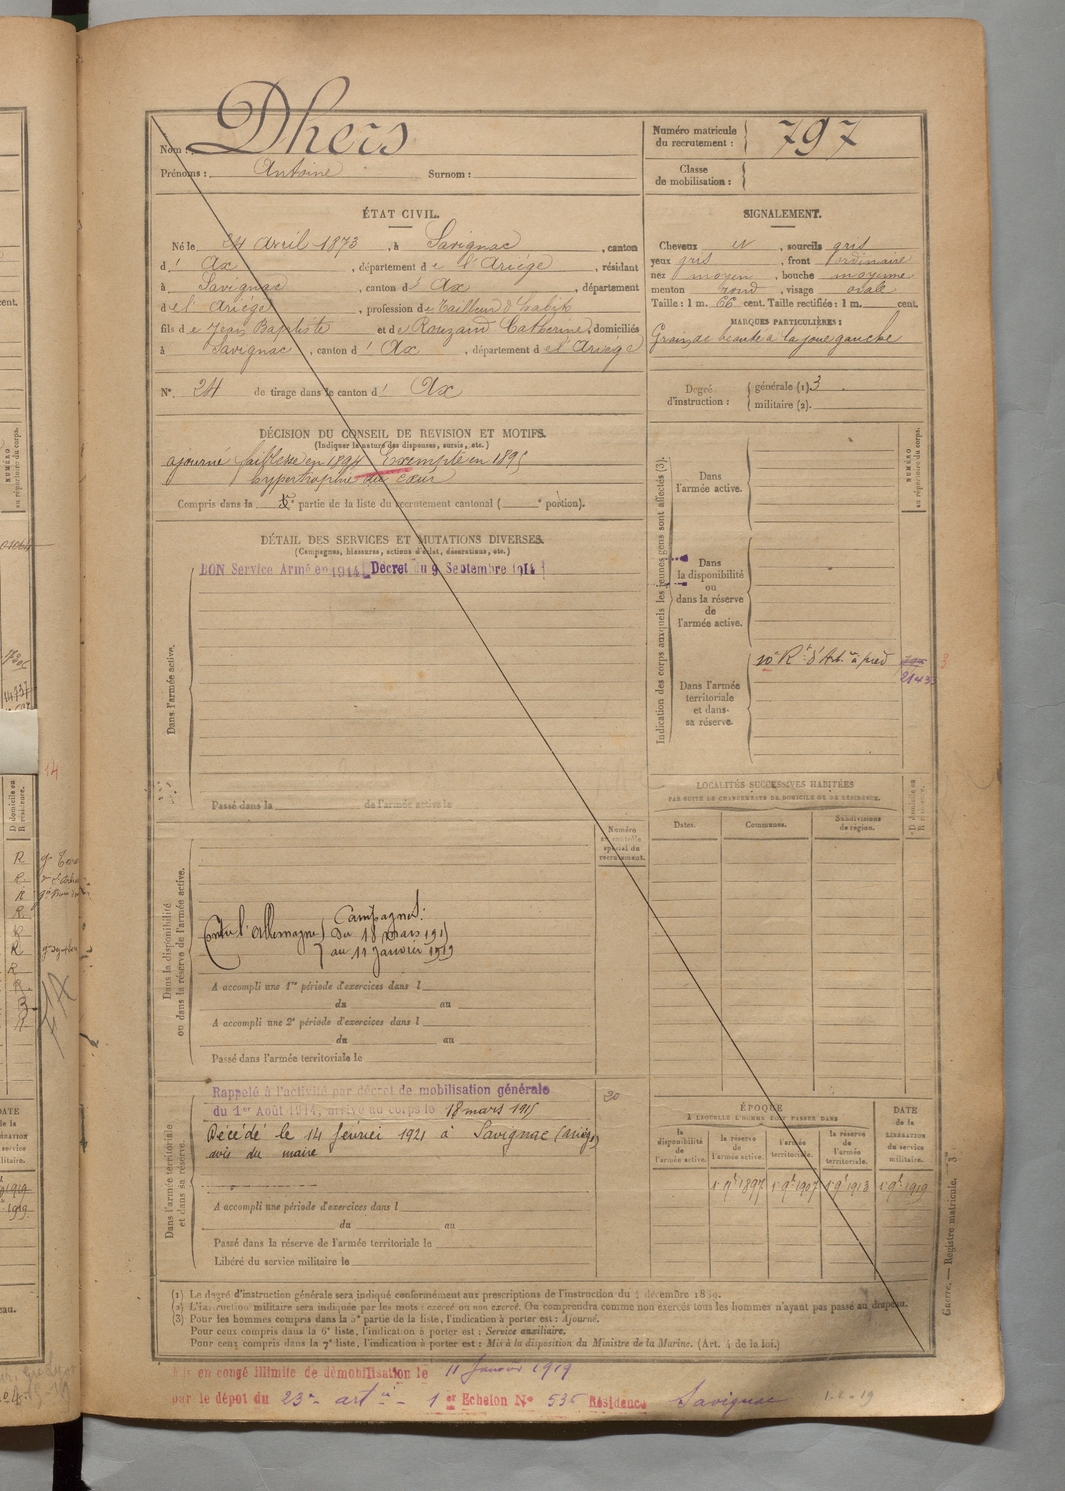 Nom : Dhers
Prénoms : Antoine Surnom :
Numéro matricule du recrutement : 797
Classe de mobilisation :
ÉTAT CIVIL.
Né le 24 avril 1873, à Savignac, canton
d' Ax, département de l'Ariège, résidant
à Savignac, canton d' Ax, département
de l'Ariège, profession de Tailleur d'habits
fils de Jean Baptiste et de Rouzaud Catherine, domiciliés
à Savignac, canton d' Ax, département de l'Ariège
N° 24 de tirage dans le canton d' Ax
SIGNALEMENT.
Cheveux N, sourcils gris
yeux gris, front ordinaire
nez moyen, bouche moyenne
menton rond, visage ovale
Taille : 1 m. 66 cent. Taille rectifiée : 1 m. cent.
MARQUES PARTICULIÈRES :
à la joue gauche
Degré d'instruction : générale (1). 3
militaire (2).
DÉCISION DU CONSEIL DE REVISION ET MOTIFS.
(Indiquer la nature des dispenses, sursis, etc.)
ajourné faiblesse en 1894 Exempté en 1895
hypertrophie du cœur
Compris dans la partie de la liste du recrutement cantonal ( e portion).
DÉTAIL DES SERVICES ET MUTATIONS DIVERSES.
(Campagnes, blessures, actions d'éclat, décorations, etc.)
BON Service Armé en 1914 Décret du 9 Septembre 1914
Dans l'armée active.
Passé dans la de l'armée active le
Indication des corps auxquels les jeunes gens sont affectés (3).
NUMÉRO au répertoire du corps.
Dans l'armée active.
Dans la disponibilité ou dans la réserve de l'armée active.
Dans l'armée territoriale et dans sa réserve.
10e Rt d'Art. à pied
2143
LOCALITÉS SUCCESSIVES HABITÉES
PAR SUITE DE CHANGEMENTS DE DOMICILE OU DE RÉSIDENCE.
Dates. Communes. Subdivisions de région. D domicile ou R résidence.
Numéro au contrôle spécial du recrutement.
Dans la disponibilité ou dans la réserve de l'armée active.
Campagnes :
Contre l'Allemagne du 18 mars 1915
au 11 Janvier 1919
A accompli une 1re période d'exercices dans l
du au
A accompli une 2e période d'exercices dans l
du au
Passé dans l'armée territoriale le
Dans l'armée territoriale et dans sa réserve.
Rappelé à l'activité par décret de mobilisation générale
du 1er Août 1914, arrivé au corps le 18 mars 1915
20
Décédé le 14 février 1921 à Savignac (Ariège)
avis du maire
A accompli une période d'exercices dans l
du au
Passé dans la réserve de l'armée territoriale le
Libéré du service militaire le
ÉPOQUE
À LAQUELLE L'HOMME DOIT PASSER DANS
la disponibilité de l'armée active. la réserve de l'armée active. l'armée territoriale. la réserve de l'armée territoriale.
DATE de la LIBÉRATION du service militaire.
1 9bre 1897 1 9bre 1907 1 9bre 1913 1 9bre 1919
(1) Le degré d'instruction générale sera indiqué conformément aux prescriptions de l'instruction du 4 décembre 1889.
(2) L'instruction militaire sera indiquée par les mots : exercé ou non exercé. On comprendra comme non exercés tous les hommes n'ayant pas passé au drapeau.
(3) Pour les hommes compris dans la 5e partie de la liste, l'indication à porter est : Ajourné.
Pour ceux compris dans la 6e liste, l'indication à porter est : Service auxiliaire.
Pour ceux compris dans la 7e liste, l'indication à porter est : Mis à la disposition du Ministre de la Marine. (Art. 4 de la loi.)
Guerre. — Registre matricule. — 3
Mis en congé illimité de démobilisation le 11 Janvier 1919
par le dépot du 23e artie 1er Echelon N° 536 Résidence Savignac